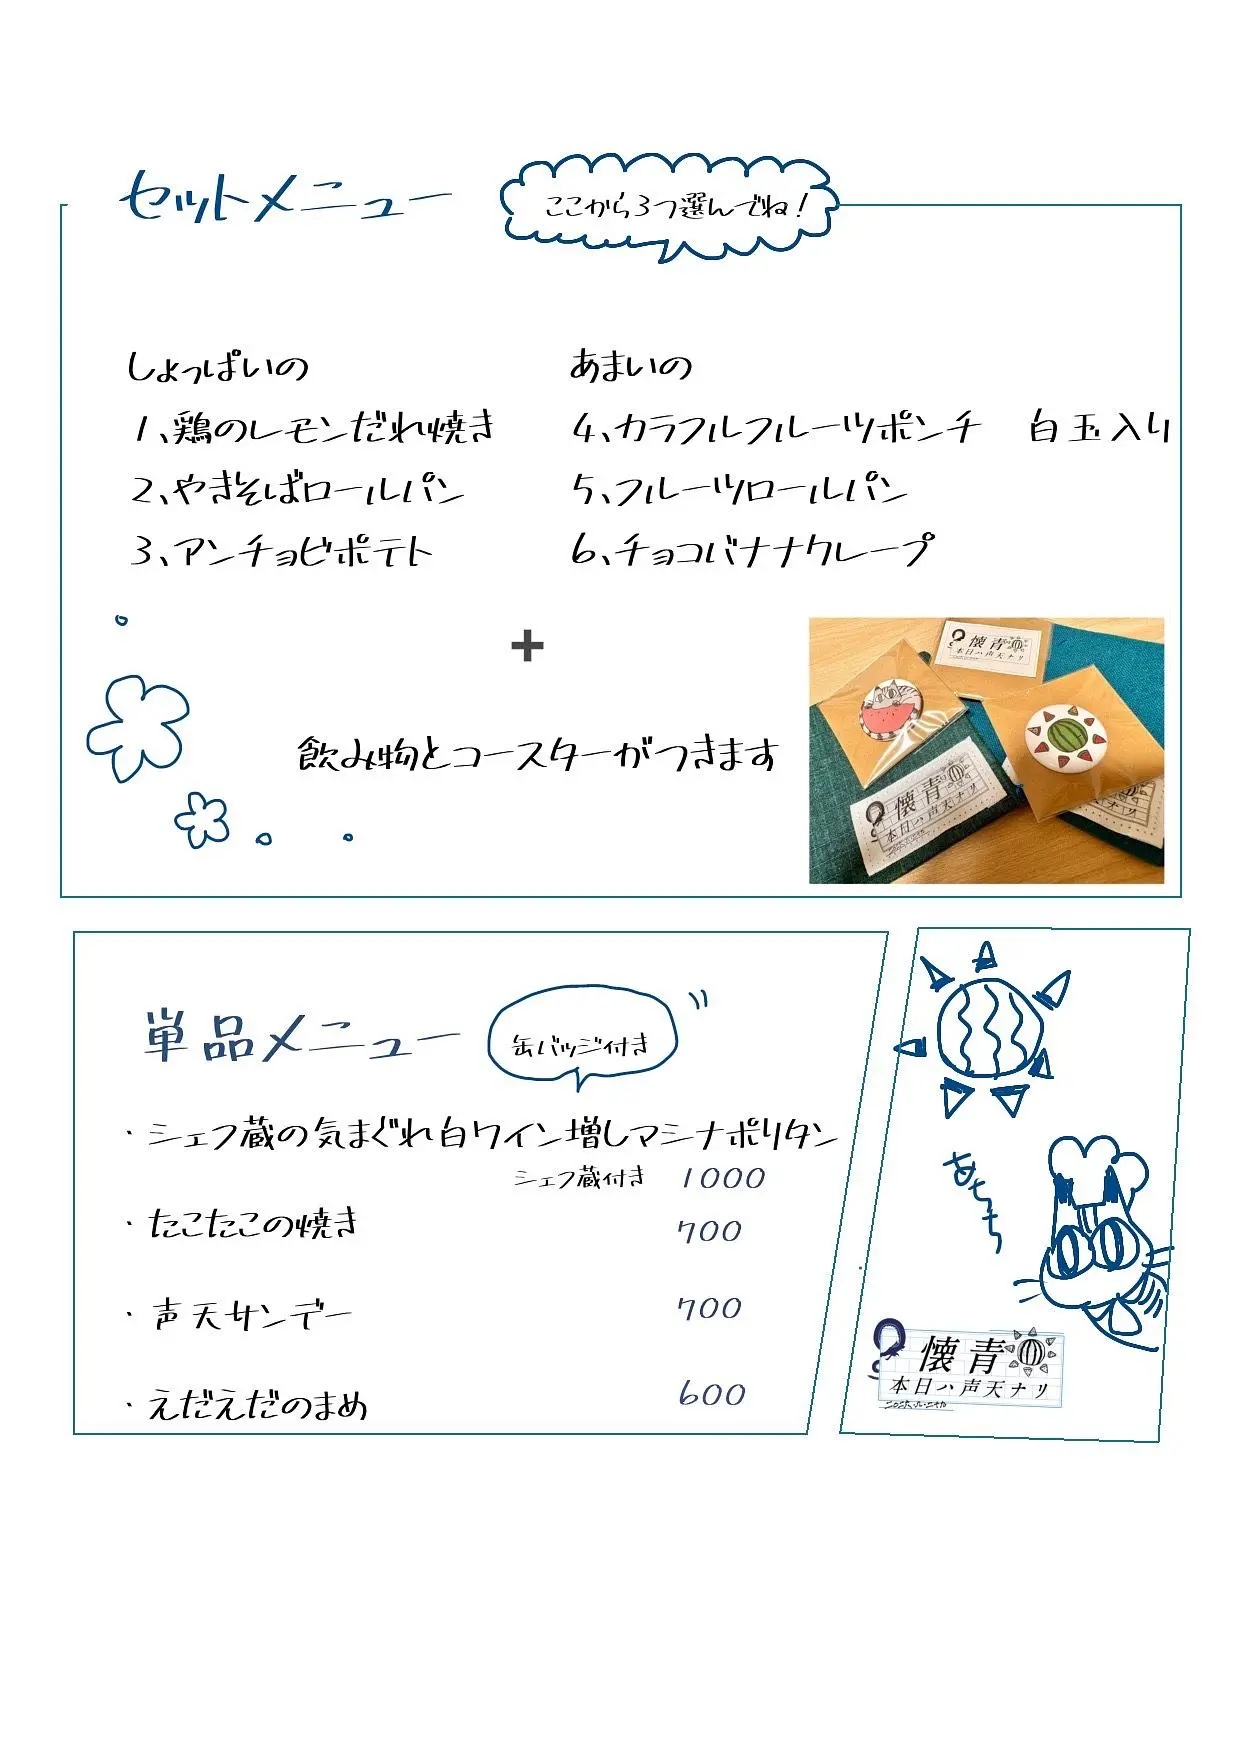 セットメニュー
ここから3つ選んでね！
しょっぱいの
1、鶏のレモンだれ焼き
2、やきそばロールパン
3、アンチョビポテト
あまいの
4、カラフルフルーツポンチ　白玉入り
5、フルーツロールパン
6、チョコバナナクレープ
+
飲み物とコースターがつきます
懐青
本日ハ声天ナリ
懐青
本日ハ声天ナリ
単品メニュー
缶バッジ付き
・シェフ蔵の気まぐれ白ワイン増しマシナポリタン
シェフ蔵付き 1000
・たこたこの焼き 700
・声天サンデー 700
・えだえだのまめ 600
あちち
懐青
本日ハ声天ナリ